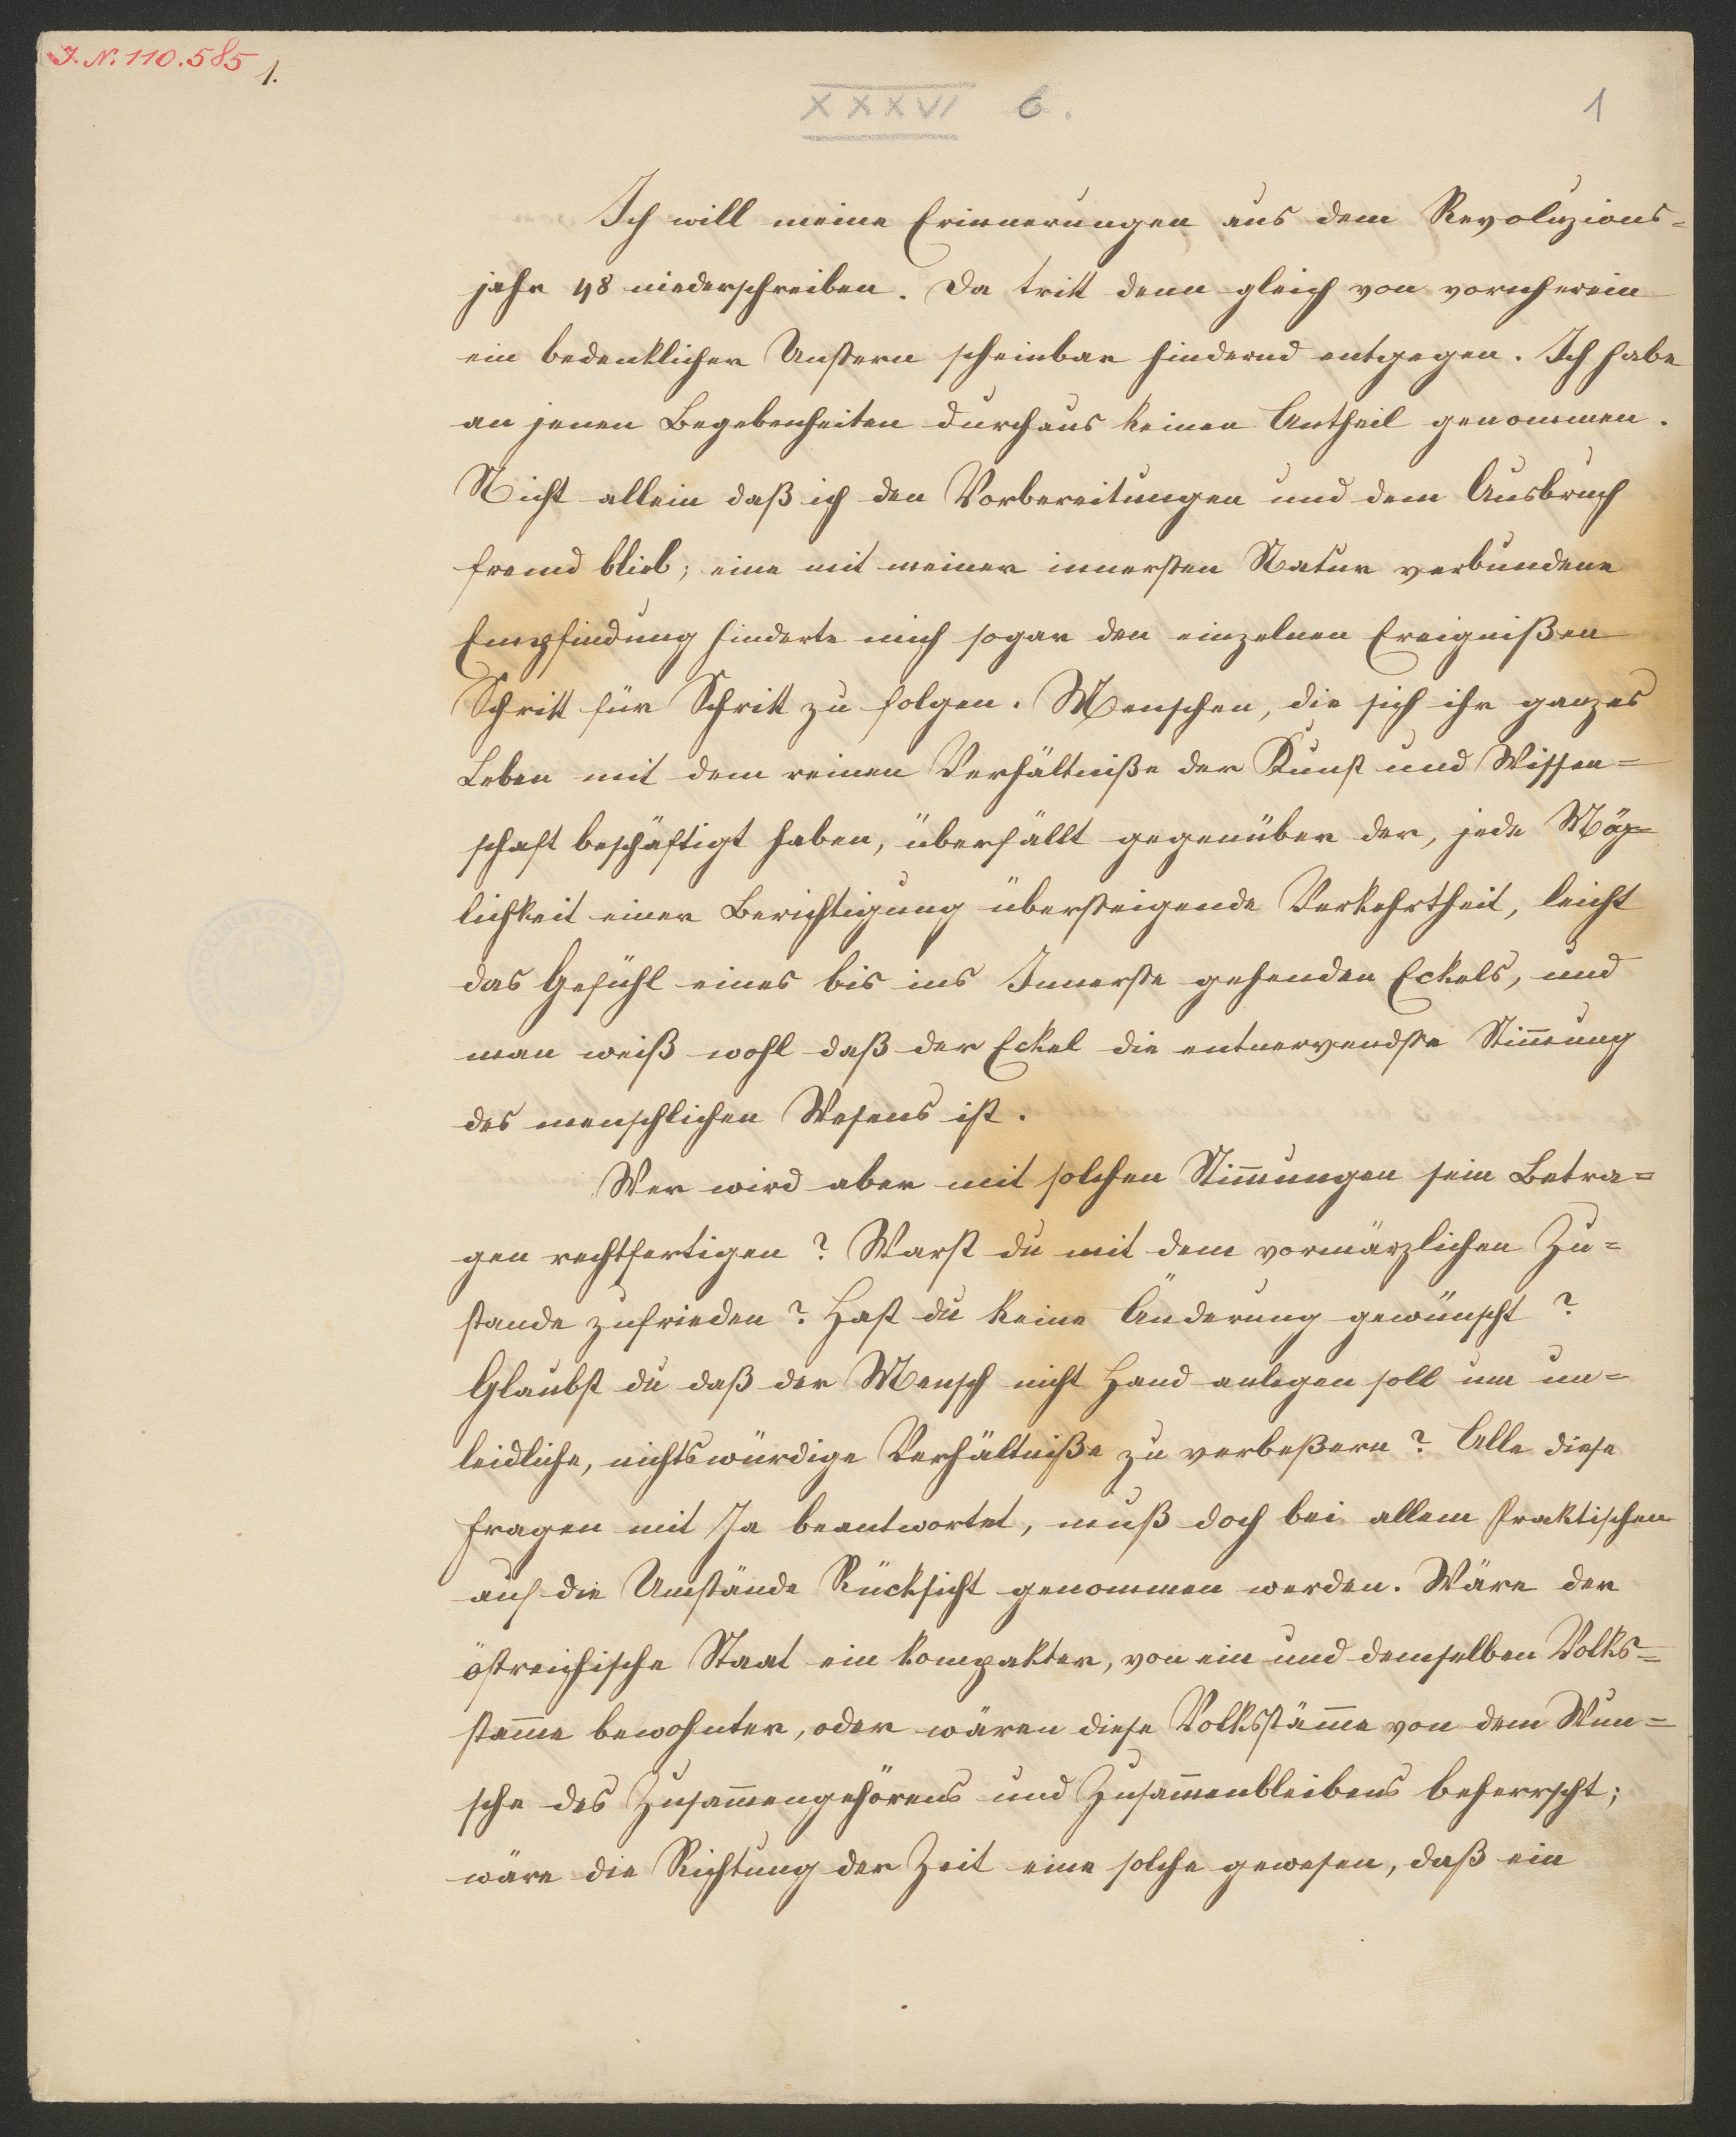 J. N. 110.585
1.
XXXVI 6.
1
Ich will meine Erinnerungen aus dem Revoluzions=
jahr 48 niederschreiben. Da tritt denn gleich von vornherein
ein bedenklicher Unstern scheinbar hindernd entgegen. Ich habe
an jenen Begebenheiten durchaus keinen Antheil genommen.
Nicht allein daß ich den Vorbereitungen und dem Ausbruch
fremd blieb; eine mit meiner innersten Natur verbundene
Empfindung hinderte mich sogar den einzelnen Ereignißen
Schritt für Schritt zu folgen. Menschen, die sich ihr ganzes
Leben mit dem reinen Verhältniße der Kunst und Wissen=
schaft beschäftigt haben, überfällt gegenüber der, jede Mög=
lichkeit einer Berichtigung übersteigende Verkehrtheit, leicht
das Gefühl eines bis ins Innerste gehenden Eckels, und
man weiß wohl daß der Eckel die entnervendste Stim̄ung
des menschlichen Wesens ist.
Wer wird aber mit solchen Stim̄ungen sein Betra=
gen rechtfertigen? Warst du mit dem vormärzlichen Zu=
stande zufrieden? Hast du keine Änderung gewünscht?
Glaubst du daß der Mensch nicht Hand anlegen soll um un=
leidliche, nichtswürdige Verhältniße zu verbeßern? Alle diese
Fragen mit Ja beantwortet, muß doch bei allem Praktischen
auf die Umstände Rücksicht genommen werden. Wäre der
östreichische Staat ein kompakter, von ein und demselben Volks=
stam̄e bewohnter, oder wären diese Volksstäm̄e von dem Wun=
sche des Zusam̄engehörens und Zusam̄enbleibens beherrscht;
wäre die Richtung der Zeit eine solche gewesen, daß ein